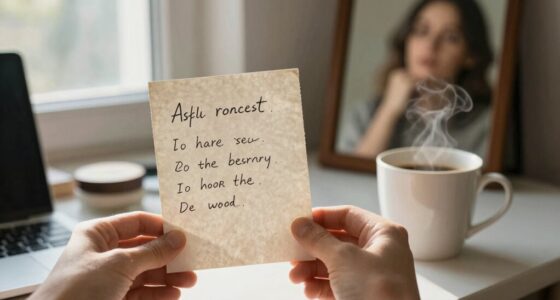 Asflu roncest.
Io hare seu.
Do the besrnry
Io hoor the.
De wood.